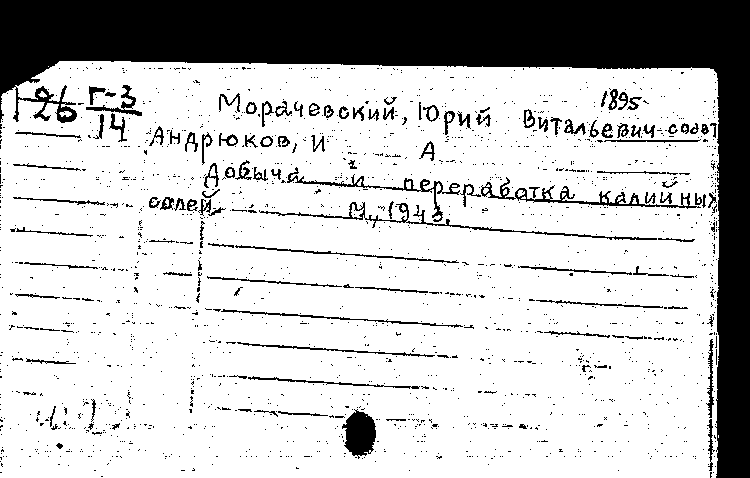 1895
96 Г-3 Морачевский, Юрий Витальевич соавт
26 14
Андрюков, И А
Добыча и переработка калийных
солей. М., 1943.